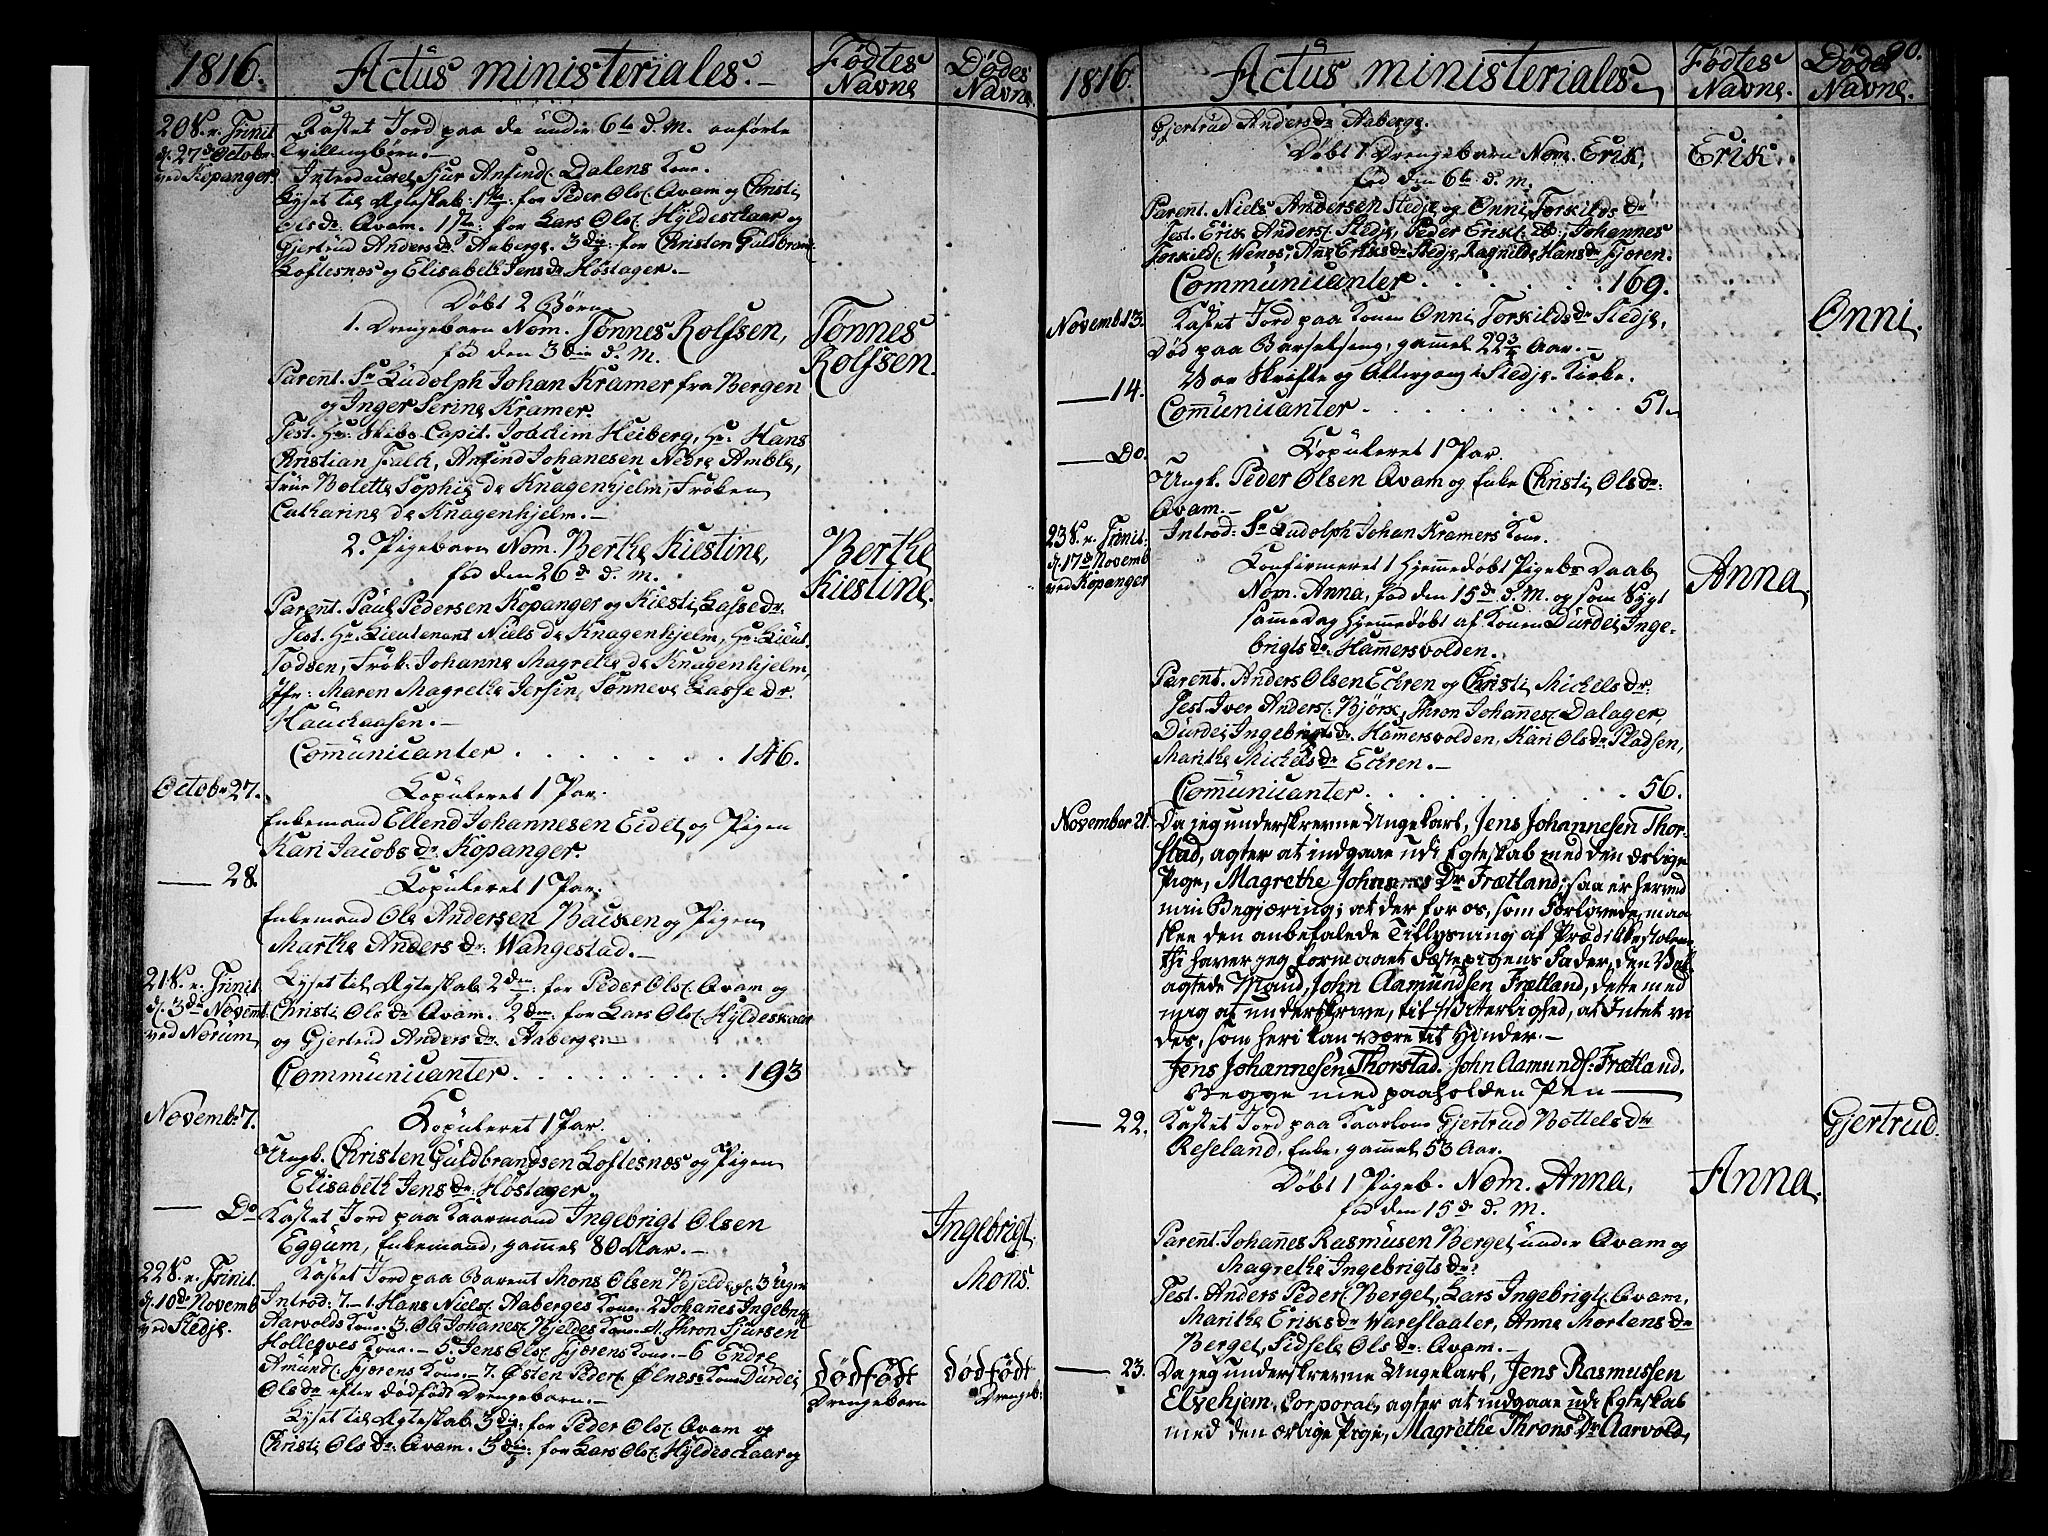 1816.
Actus ministeriales.
Fødtes Navne
Dødes Navne
20 S. e. Trinit.
d. 27de Octobr.
ved Kopanger.
Kastet Jord paa de under 6te d. M. anførte
Tvillingbørn.
Introduceret Sjur Anfind. Dalens Kone.
Lyset til Ægteskab: 1ste: for Peder Ols. Qvam og Christi
Ols dr. Qvam. 1ste: for Lars Ols. Hyldeskaar og
Gjertrud Anders dr. Aaberge. 3die: for Christen Guldbrans.
Loftesnæs og Elisabeth Jens dr. Høstager.
Døbt 2 Børn
1. Drengebarn Nom. Tønnes Rolfsen,
fød den 3die d. M.
Tønnes
Rolfsen.
Parent. Sr. Ludolph Johan Kramer fra Bergen
og Inger Serine Kramer.
Test. Hr. Skibs-Capit. Joachim Heiberg, Hr. Hans
Christian Falch, Anfind Johanesen Nedre Amble,
Frue Bolette Sophie de Knagenhjelm, Frøken
Catharine de Knagenhjelm.
2. Pigebarn Nom. Berthe Kiestine,
fød den 26de d. M.
Berthe
Kiestine.
Parent. Paul Pedersen Kopanger og Kiesti Lasse dr.
Test. Hr. Lieutenant Niels de Knagenhjelm, Hr. Lieut.
Todsen, Frøk. Johanne Magrethe de Knagenhjelm,
Jfr: Maren Magrethe Jersin, Sønneve Lasse dr.
Hauckaasen.
Communicanter . . . . . . 146.
Octobr 27.
Kopuleret 1 Par.
Enkemand Ellend Johannesen Eidet og Pigen
Kari Jacobs dr. Kopanger.
28.
Kopuleret 1 Par.
Enkemand Ole Andersen Backen og Pigen
Marthe Anders dr. Wangestad.
21 S. e. Trinit.
d. 3de Novemb.
ved Norum.
Lyset til Ægteskab 2den: for Peder Ols. Qvam og
Christi Ols dr. Qvam. 2den: for Lars Ols. Hyldeskaar
og Gjertrud Anders dr. Aaberge.
Communicanter . . . . . . 193
Novemb. 7.
Kopuleret 1 Par.
Ungk. Christen Guldbrandsen Loftesnæs og Pigen
Elisabeth Jens dr. Høstager.
Do
Kastet Jord paa Kaarmand Ingebrigt Olsen
Eggum, Enkemand, gammel 80 Aar.
Ingebrigt.
22 S. e. Trinit.
d. 10de Novemb.
ved Stedje.
Kastet Jord paa Barnet Mons Olsen Bjelde, gl. 3 Uger
Mons.
Introd: 7 - 1. Hans Niels. Aaberges Kone. 2 Johanes Ingebrigt.
Aarvolds Kone. 3. Ole Johanes. Bjeldes Kone. 4. Thron Sjursen
Hollegves Kone. - 5. Jens Ols. Fjærens Kone. - 6 Endre
Amund. Fjærens Kone. - 7. Østen Peders. Ølnæs Kone Durdei
Ols dr. efter dødfødt Drengebarn.
dødfødt
Drengebarn
dødfødt
Drengeb.
Lyset til Ægteskab 3die: for Peder Ols. Qvam og
Christi Ols dr. Qvam. 3die: for Lars Ols. Hyldeskaar og
1816.
Actus ministeriales.
Fødtes Navne.
Dødes Navne.
90.
Gjertrud Anders dr. Aaberge.
Døbt 1 Drengebarn Nom. Erik,
fød den 6te d. M.
Erik
Parent. Niels Andersen Stedje og Onni Torkilds dr.
Test. Erik Anders. Stedje, Peder Eriks. ib., Johannes
Torkild. Wenes, Ane Eriks dr. Stedje, Ragnilde Hans dr. Fjæren.
Communicanter . . . . . . 169.
Novemb 13.
Kastet Jord paa Konen Onni Torkilds dr. Stedje,
Død paa Barselseng, gammel 22 3/4 Aar.
Onni.
14.
Var Skrifte og Altergang i Stedje Kirke.
Communicanter . . . . . . 51.
Do.
Kopuleret 1 Par.
Ungk. Peder Olsen Qvam og Enke Christi Ols dr.
Qvam.
23 S. e. Trinit.
d. 17de Novemb
ved Kopanger
Introd: Sr Ludolph Johan Kramers Kone.
Confirmeret 1 hjemmedøbt Pigebs Daab
Nom. Anna, fød den 15de d. M. og som Sygt
samme dag hjemmedøbt af Konen Durdei Inge-
brigts dr. Hamersvolden.
Anna
Parent. Anders Olsen Eckren og Christi Michels dr.
Test. Iver Anders. Björk, Thron Johannes. Dalager,
Durdei Ingebrigts dr. Hamersvolden, Kari Ols dr. Pladsen,
Marithe Michels dr. Eckren.
Communicanter . . . . . . 56.
November 21.
Da jeg underskrevne Ungekarl, Jens Johannesen Thor-
stad, agter at indgaae udi Egteskab med den ærlige
Pige, Magrethe Johns Dr Frætland; saa er herved
min Begjæring; at der for os, som Forlovede, maa
skee den anbefalede Tillysning af Prædikestolen,
thi haver jeg formaaet Fæstepigens Fader, den Vel-
agtede Mand, John Aamundsen Frætland, dette med
mig at underskrive, til Vitterlighed, at Intet vi-
des, som heri kan være til Hinder.
Jens Johannesen Thorstad. John Aamunds: Frætland.
Begge med paaholden Pen
22.
Kastet Jord paa Kaarkone Gjertrud Bottels dr
Reseland, Enke, gammel 53 Aar.
Gjertrud.
Døbt 1 Pigeb. Nom. Anna,
fød den 15de d. M.
Anna.
Parent. Johannes Rasmusen Berget under Qvam og
Magrethe Ingebrigts dr.
Test. Anders Peder. Berget, Lars Ingebrigt. Qvam,
Marithe Eriks dr Wareslaater, Anne Mortens dr
Berget, Sidsele Ols dr. Qvam.
23.
Da jeg underskrevne Ungekarl, Jens Rasmussen
Elvehjem, Corporal, agter at indgaae udi Egteskab
med den ærlige Pige, Magrethe Throns Dr Aarvold,